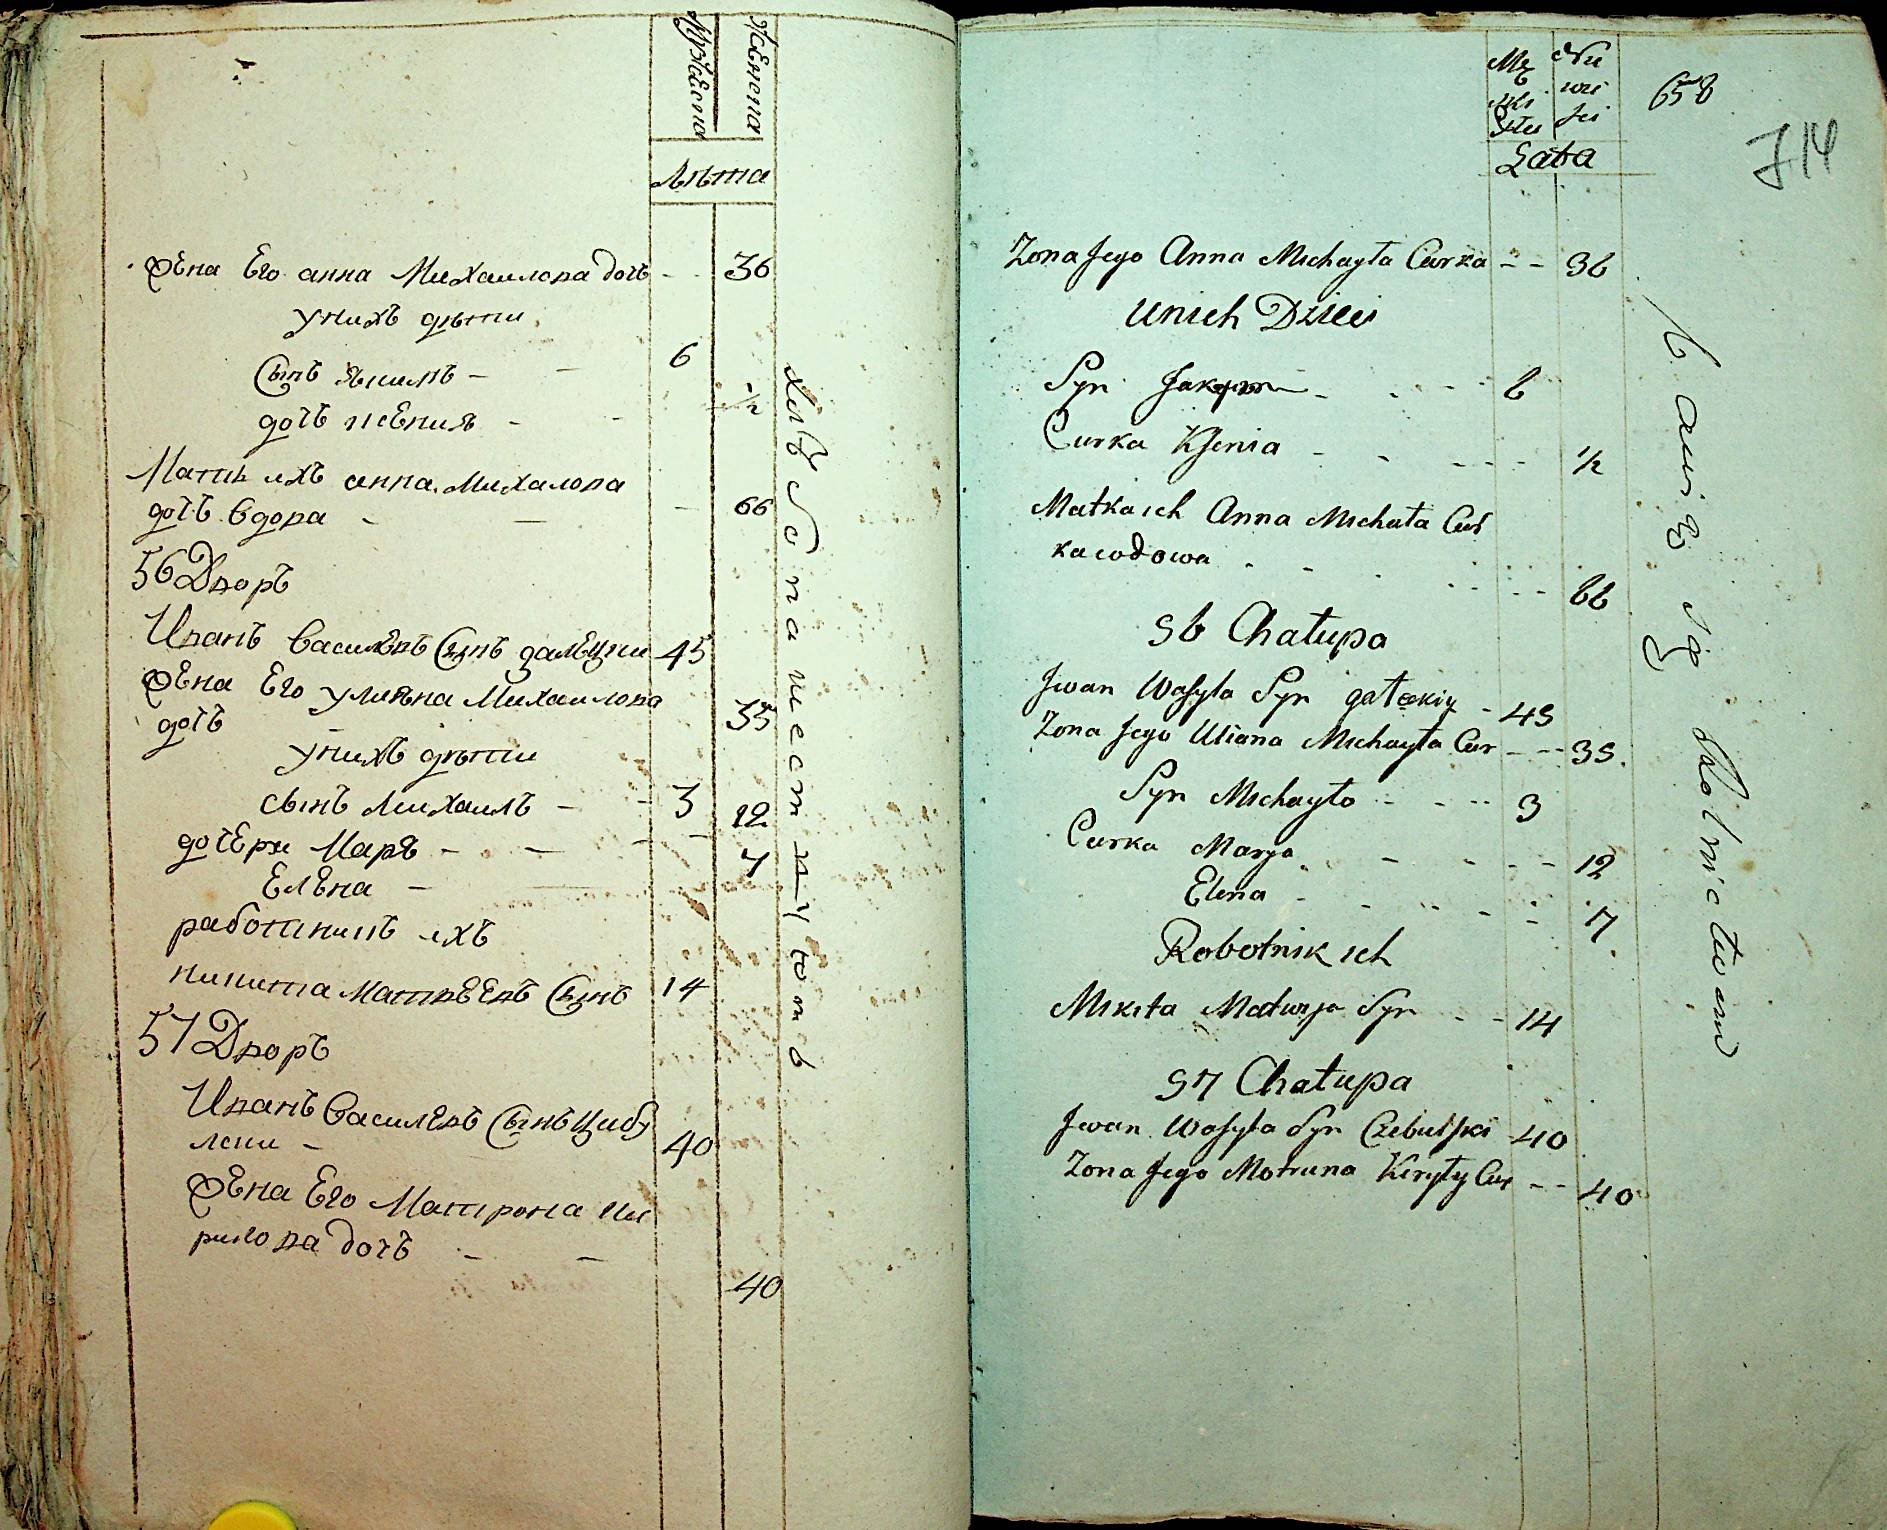 Мужеска
Женска
Лѣта
жена Его анна Михаилова дочь - - 36
у нихъ дѣти
Сынъ Якимъ - - 6
дочь ксения - - 1/2
Мать ихъ анна Михалова
дочь вдова - - - 66
56 Дворъ
Иванъ Васильевъ Сынъ галецки 45
жена Его улияна Михаилова
дочь 35
у нихъ дѣти
сынъ Михаилъ - - 3
дочери Маря - - - 12
Елена - 7
работникъ ихъ
никита Матвеевъ Сынъ 14
57 Дворъ
Иванъ Васильевъ Сынъ Цибу
лски - 40
жена Его Матрона ки
рилова дочь - - 40
хлѣбопашествуютъ
Mę
skiey
Płci
Nie
wie
sci
Lata
658
714
Zona Jego Anna Michayła Curka - - 36
U nich Dzieci
Syn Jakym - - - 6
Curka Ksenia - - - - 1/2
Matka ich Anna Michała Cur
ka wdowa - - - - 66
56 Chałupa
Jwan Wasyla Syn gałeckiy - 45
Zona Jego Uliana Michayła Cur - - - 35
Syn Michayło - - - 3
Curka Marya - - - - 12
Elena - - - - - 7
Robotnik ich
Mikita Matwija Syn - - 14
57 Chałupa
Jwan Wasyla Syn Czebulski 40
Zona Jego Motruna Kiryły Cur - - 40